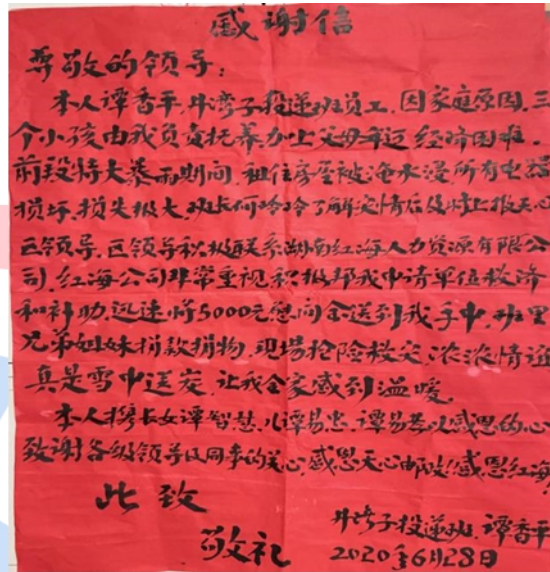 感谢信
尊敬的领导:
本人谭香平,井湾子投递班员工,因家庭原因,三
个小孩由我负责抚养加上父母年迈经济困难,
前段特大暴雨期间,租住房屋被淹水浸所有电器
损坏,损失极大,班长何玲玲了解灾情后及时上报天心
区领导,区领导积极联系湖南红海人力资源有限公
司,红海公司非常重视积极帮我申请单位救济
和补助,迅速将5000元慰问金送到我手中,班里
兄弟姐妹捐款捐物,现场抢险救灾,浓浓情谊
真是雪中送炭,让我全家感到温暖。
本人携长女谭智慧,儿谭易忠,谭易 以感恩的心
致谢各级领导及同事的关心,感恩天心邮政!感恩红海
此致
敬礼
井湾子投递班,谭香平
2020年6月28日